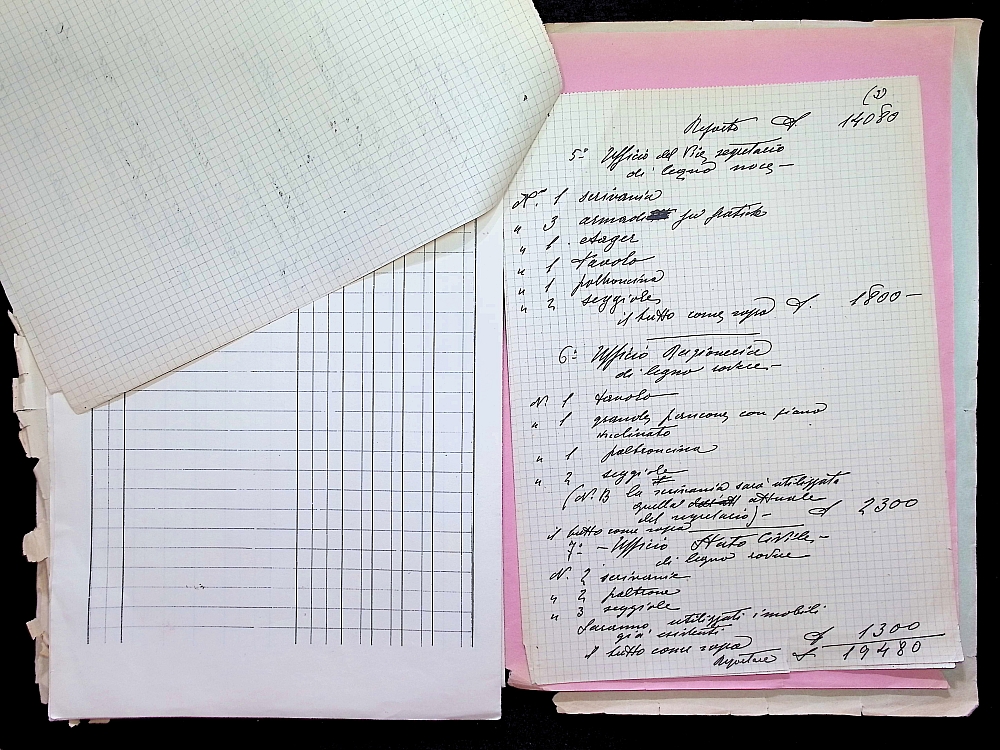 (2)
Riporto £ 14080
5° Ufficio del Vice segretario
di legno noce —
N° 1 scrivania
" 3 armadi
" 1 étager
" 1 tavolo
" 1 poltroncina
" 2 seggiole
il tutto come sopra £. 1800 —
6° Ufficio Ragioneria
di legno rovere —
N. 1 tavolo
" 1 grande bancone con piano
inclinato
" 1 poltroncina
" 2 seggiole
(N.B. la scrivania sarà utilizzata
quella attuale
del segretario) — £ 2300
il tutto come sopra
7° — Ufficio Stato Civile —
di legno rovere
N. 2 scrivanie
" 2 poltrone
" 3 seggiole
Saranno utilizzati i mobili
già esistenti
il tutto come sopra £ 1300
Riportare £ 19480